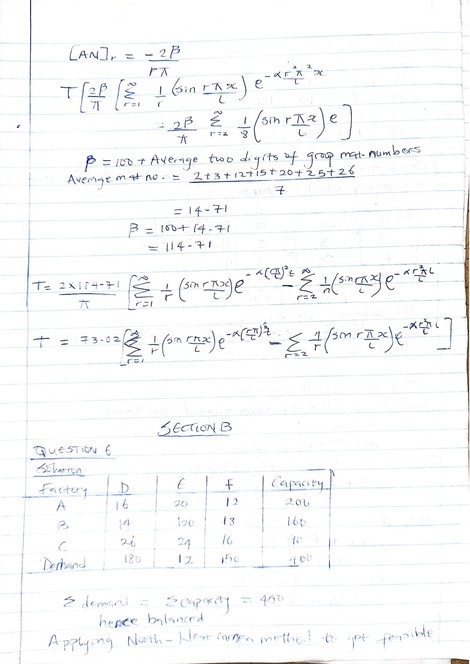 [AN]r = -2β/rπ
T[2β/π [Σ∞r=1 1/r (sin rπx/L) e^-αr²π²x
= 2β/π Σ∞r=2 1/8 (sin rπx/L) e]
β = 100 + Average two digits of group mat. numbers
Average mat no. = 2+3+12+15+20+25+26/7
= 14-71
β = 100 + 14.71
= 114-71
T = 2x114-71/π [Σ∞r=1 1/r (sin rπx/L) e^-α(rπ/L)²t - Σ∞r=2 1/n (sin rπx/L) e
T = 73.02 [Σ∞r=1 1/r (sin rπx/L) e - Σr=2 1/r (sin rπx/L) e ]
SECTION B
QUESTION 6
Solution
Factory D E F Capacity
A 16 20 12 200
B 14 120 18 160
C 26 24 16
Demand 180 12 150 400
Σ demand = Σ capacity = 450
hence balanced
Applying North-West corner method to get feasible